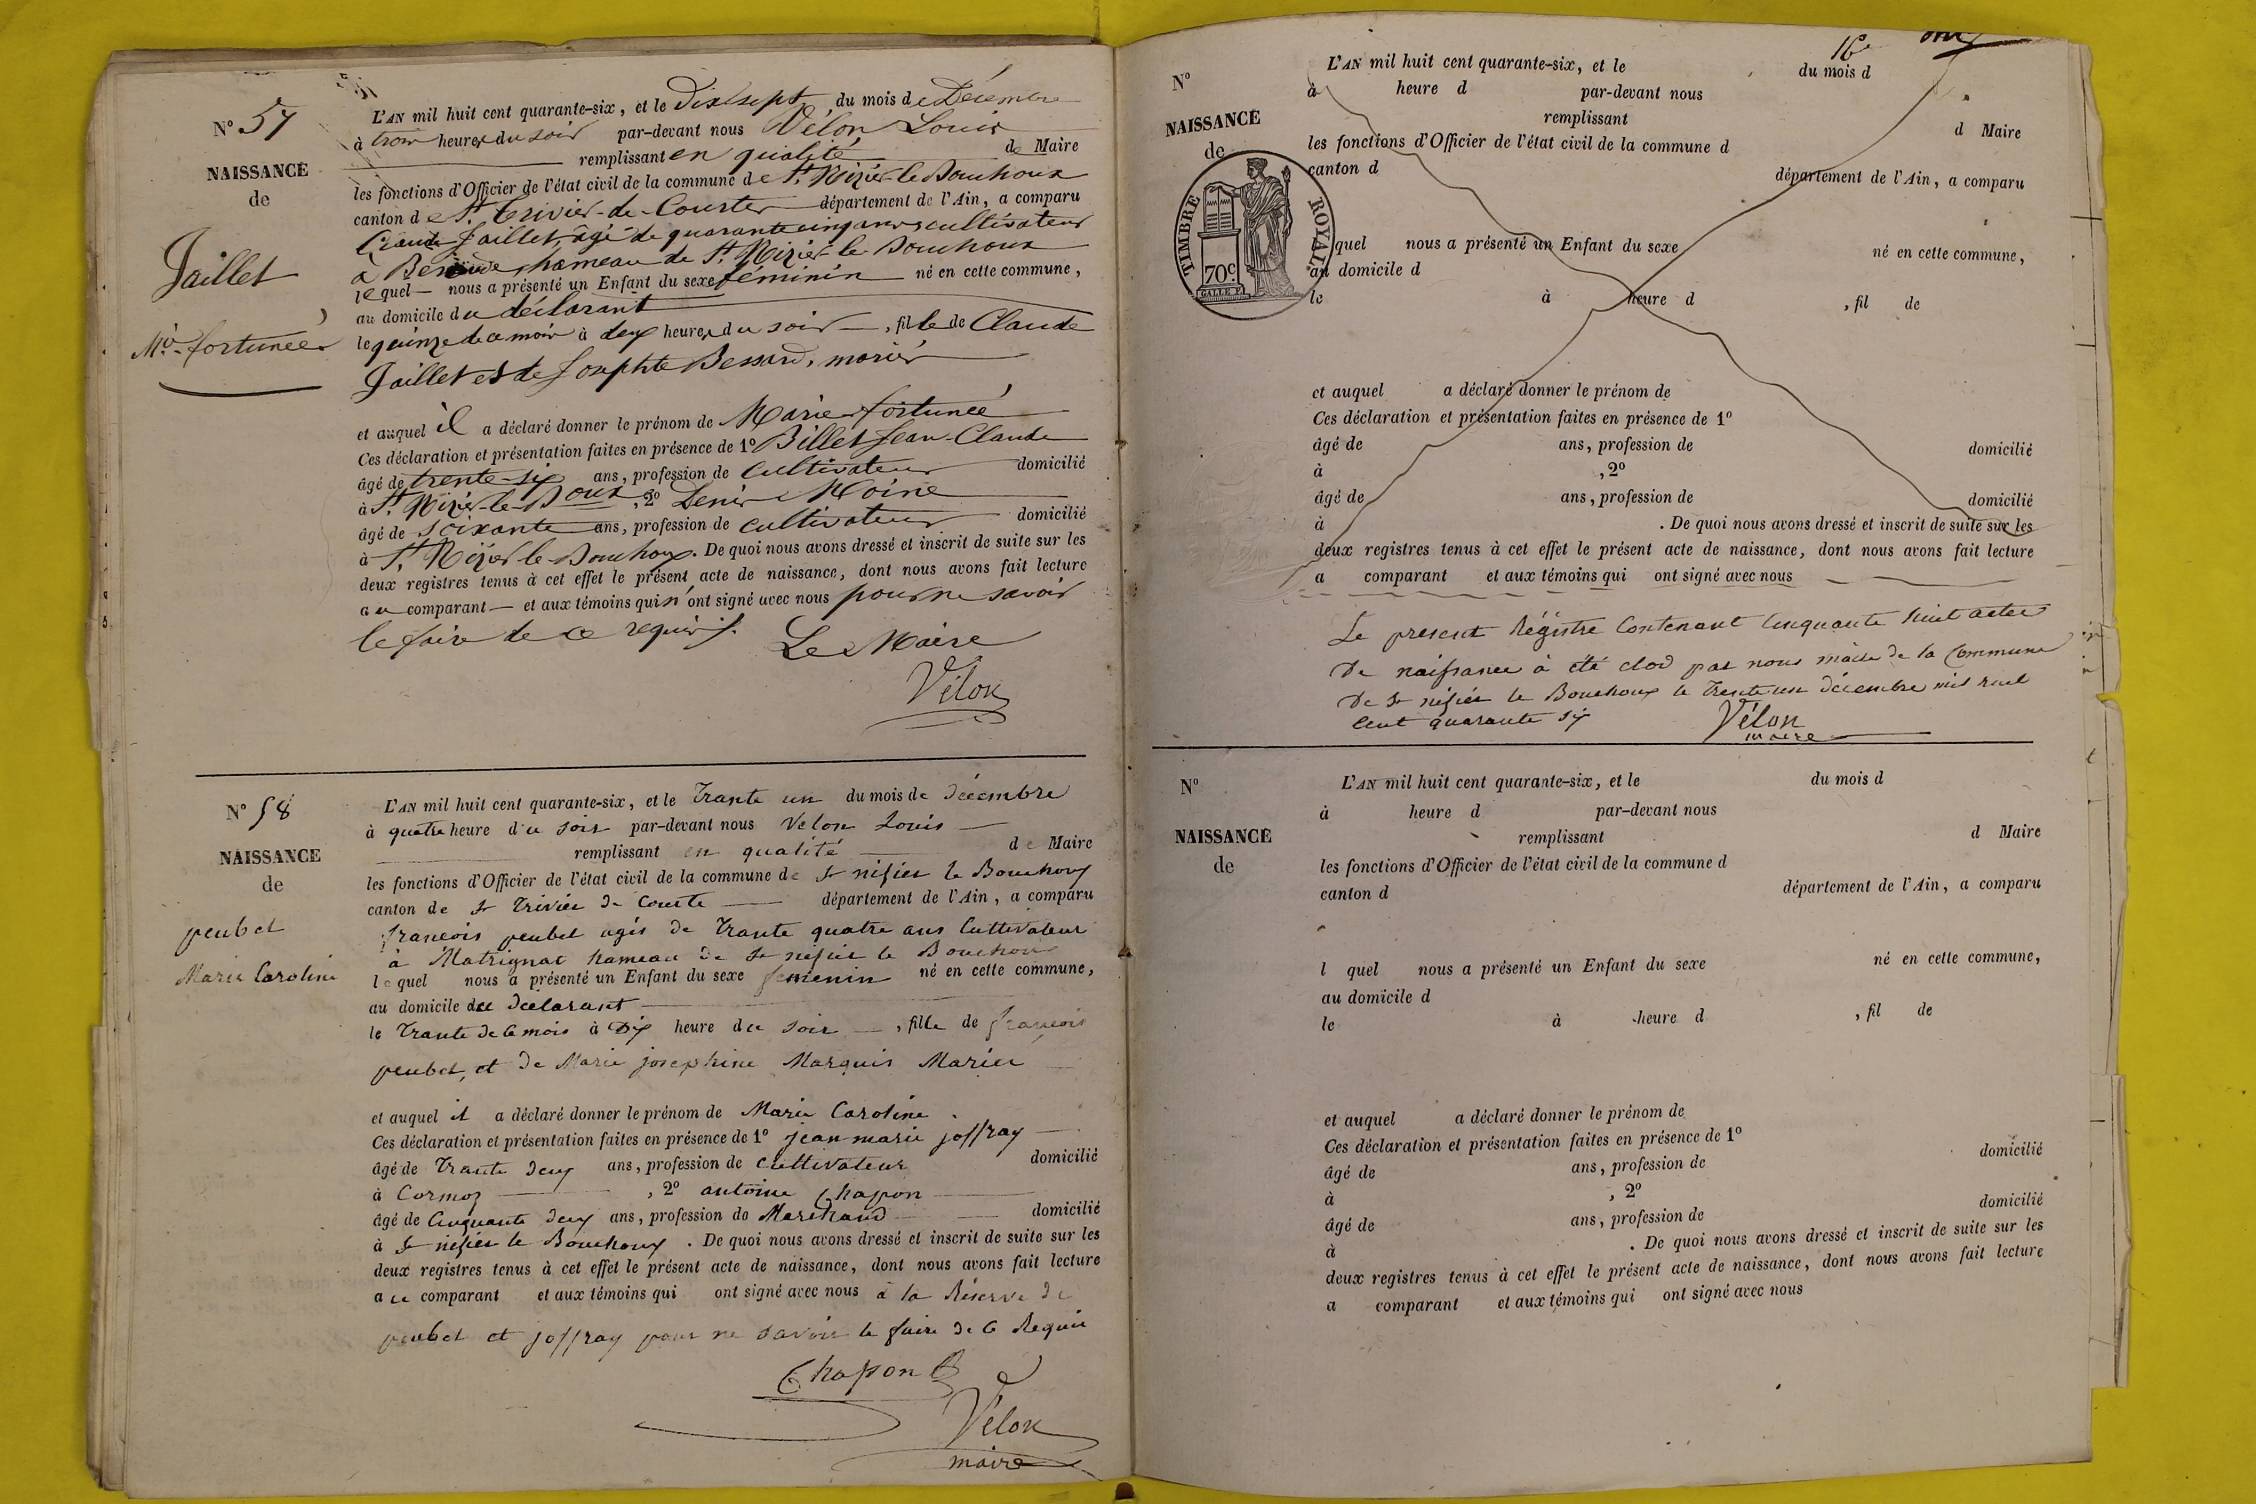 N° 57
NAISSANCE
de
Jaillet
M.ie fortunée
L'AN mil huit cent quarante-six, et le Dixsept du mois de Décembre
à trois heures du soir par-devant nous Vélon Louis
remplissant en qualité de Maire
les fonctions d'Officier de l'état civil de la commune de St. Nizier-le-Bouchoux
canton de St. Trivier-de-Courtes département de l'Ain, a comparu
Claude Jaillet, âgé de quarante cinq ans cultivateur
à hameau de St. Nizier le Bouchoux
lequel nous a présenté un Enfant du sexe féminin né en cette commune,
au domicile du déclarant
le quinze de ce mois à deux heures du soir, fille de Claude
Jaillet et de Josephte Bessard, mariés
et auquel il a déclaré donner le prénom de Marie fortunée
Ces déclaration et présentation faites en présence de 1° Billet Jean-Claude
âgé de trente-six ans, profession de cultivateur domicilié
à St. Nizier-le-Boux, 2° Denis Moine
âgé de soixante ans, profession de cultivateur domicilié
à St. Nizier le Bouchoux. De quoi nous avons dressé et inscrit de suite sur les
deux registres tenus à cet effet le présent acte de naissance, dont nous avons fait lecture
au comparant et aux témoins qui n'ont signé avec nous pour ne savoir
le faire de ce requis.
Le Maire
Vélon
N° 58
NAISSANCE
de
peubet
Marie Caroline
L'AN mil huit cent quarante-six, et le Trante un du mois de décembre
à quatre heure du soir par-devant nous Velon Louis
remplissant en qualité de Maire
les fonctions d'Officier de l'état civil de la commune de St nisier le Bouchoux
canton de St Trivier de Courte département de l'Ain, a comparu
françois peubet agés de Trante quatre ans Cultivateur
à Matrignat hameau de St nisier le Bouchoux
lequel nous a présenté un Enfant du sexe femenin né en cette commune,
au domicile du déclarant
le Trante de ce mois à Dix heure du soir, fille de françois
peubet, et de Marie josephine Marquis Mariés
et auquel il a déclaré donner le prénom de Marie Caroline
Ces déclaration et présentation faites en présence de 1° jean marie joffray
âgé de Trante deux ans, profession de cultivateur domicilié
à Cormoz, 2° antoine Chapon
âgé de Cinquante deux ans, profession de Marchand domicilié
à St nisier le Bouchoux. De quoi nous avons dressé et inscrit de suite sur les
deux registres tenus à cet effet le présent acte de naissance, dont nous avons fait lecture
au comparant et aux témoins qui ont signé avec nous à la Réserve de
peubet et joffray pour ne savoir le faire de ce Requis
Chapon
Vélon
maire
16e
N°
NAISSANCE
de
TIMBRE ROYAL
70c
L'AN mil huit cent quarante-six, et le du mois d
à heure d par-devant nous
remplissant d Maire
les fonctions d'Officier de l'état civil de la commune d
canton d département de l'Ain, a comparu
quel nous a présenté un Enfant du sexe né en cette commune,
au domicile d
le à heure d , fil de
et auquel a déclaré donner le prénom de
Ces déclaration et présentation faites en présence de 1°
âgé de ans, profession de domicilié
à , 2°
âgé de ans, profession de domicilié
à . De quoi nous avons dressé et inscrit de suite sur les
deux registres tenus à cet effet le présent acte de naissance, dont nous avons fait lecture
a comparant et aux témoins qui ont signé avec nous
Le present Régistre Contenant Cinquante huit actes
De naissance à été clod par nous maire de la Commune
De St nisier le Bouchoux le Trente un décembre mil huit
Cent quarante six
Vélon
maire
N°
NAISSANCE
de
L'AN mil huit cent quarante-six, et le du mois d
à heure d par-devant nous
remplissant d Maire
les fonctions d'Officier de l'état civil de la commune d
canton d département de l'Ain, a comparu
l quel nous a présenté un Enfant du sexe né en cette commune,
au domicile d
le à heure d , fil de
et auquel a déclaré donner le prénom de
Ces déclaration et présentation faites en présence de 1°
âgé de ans, profession de domicilié
à , 2°
âgé de ans, profession de domicilié
à . De quoi nous avons dressé et inscrit de suite sur les
deux registres tenus à cet effet le présent acte de naissance, dont nous avons fait lecture
a comparant et aux témoins qui ont signé avec nous